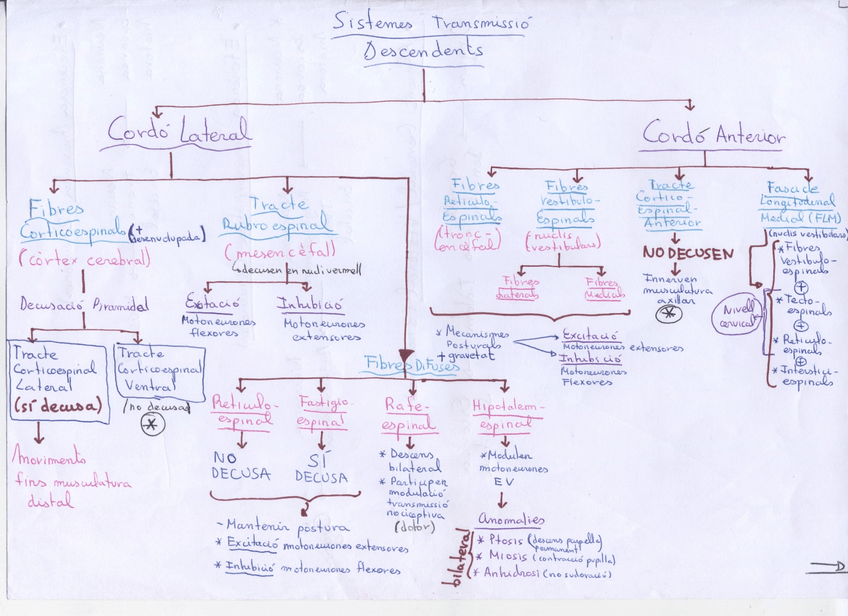 Sistemes Transmissió
Descendents
Cordó Lateral
Cordó Anterior
Fibres
Corticoespinals (+
desenvolupada)
(còrtex cerebral)
Tracte
Rubroespinal
(mesencèfal)
↳decusen en nucli vermell
Fibres
Reticulo-
Espinals
(tronc-
encèfal)
Fibres
Vestibulo-
Espinals
(nuclis
vestibulars)
Tracte
Cortico-
Espinal
Anterior
Fascicle
Longitudinal
Medial (FLM)
(nuclis vestibulars)
Decusació Piramidal
Excitació
Motoneurones
flexores
Inhibició
Motoneurones
extensores
Fibres
laterals
Fibres
Medials
NO DECUSEN
Innerven
musculatura
axillar
*
* Fibres
Vestibulo-
espinals
+
* Tecto-
espinals
+
* Reticulo-
espinals
+
* Intersticì-
espinals
Nivell
cervical
Tracte
Corticoespinal
Lateral
(sí decusa)
Tracte
Corticoespinal
Ventral
(no decusa)
*
* Mecanismes
Posturals
+ gravetat
Excitació
Motoneurones extensores
Inhibició
Motoneurones
Flexores
Fibres Difuses
Reticulo-
espinal
Fastigio-
espinal
Rafe-
espinal
Hipotalem-
espinal
Movimento
fins musculatura
distal
NO
DECUSA
SÍ
DECUSA
* Descens
bilateral
* Participen
modulació
transmissió
nociceptiva
(dolor)
* Modulen
motoneurones
EV
- Mantenir postura
* Excitació motoneurones extensores
* Inhibició motoneurones flexores
Anomalies
bilateral
* Ptosis (descens parpella
permanent)
* Miosis (contracció pupil·la)
* Anhidrosi (no sudoració)